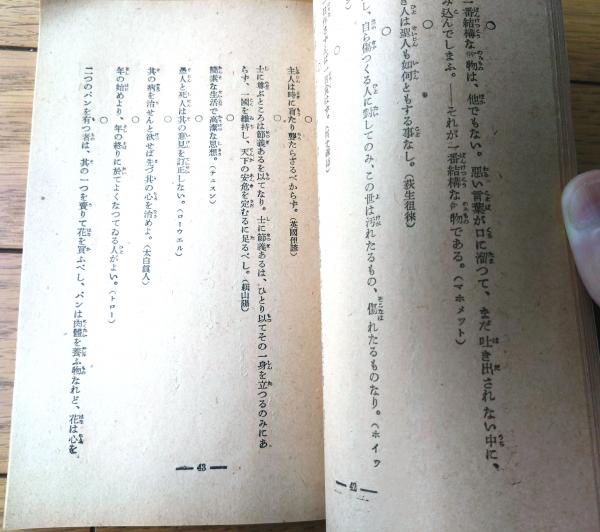 一番結構な物は、他でもない。悪い言葉が口に溜つて、まだ吐き出されない中に、
み込んでしまふ。――それが一番結構な物である。(マホメット)
○
き人は聖人も如何ともする事なし。(荻生徂徠)
○
し、自ら傷つくる人に對してのみ、この世は汚れたるもの、傷れたるものなり。(ホイツ
○
— 42 —
主人は時に盲たり聾たらざるべからず。(英國俚諺)
○
士に尊ぶところは節義あるを以てなり。士に節義あるは、ひとり以てその一身を立つるのみにあ
らず、一國を維持し、天下の安危を定むるに足るべし。(頼山陽)
○
簡素な生活で高潔な思想。(テニスン)
○
愚人と死人は其の意見を訂正しない。(ローウエル)
○
其の病を治せんと欲せば先づ其の心を治めよ、(太白眞人)
○
年の始めより、年の終りに於てよくたつてゐる人がよい。(トロー)
○
二つのパンを有つ者は、其の一つを賣りて花を買ふべし、パンは肉體を養ふ物なれど、花は心を
— 43 —